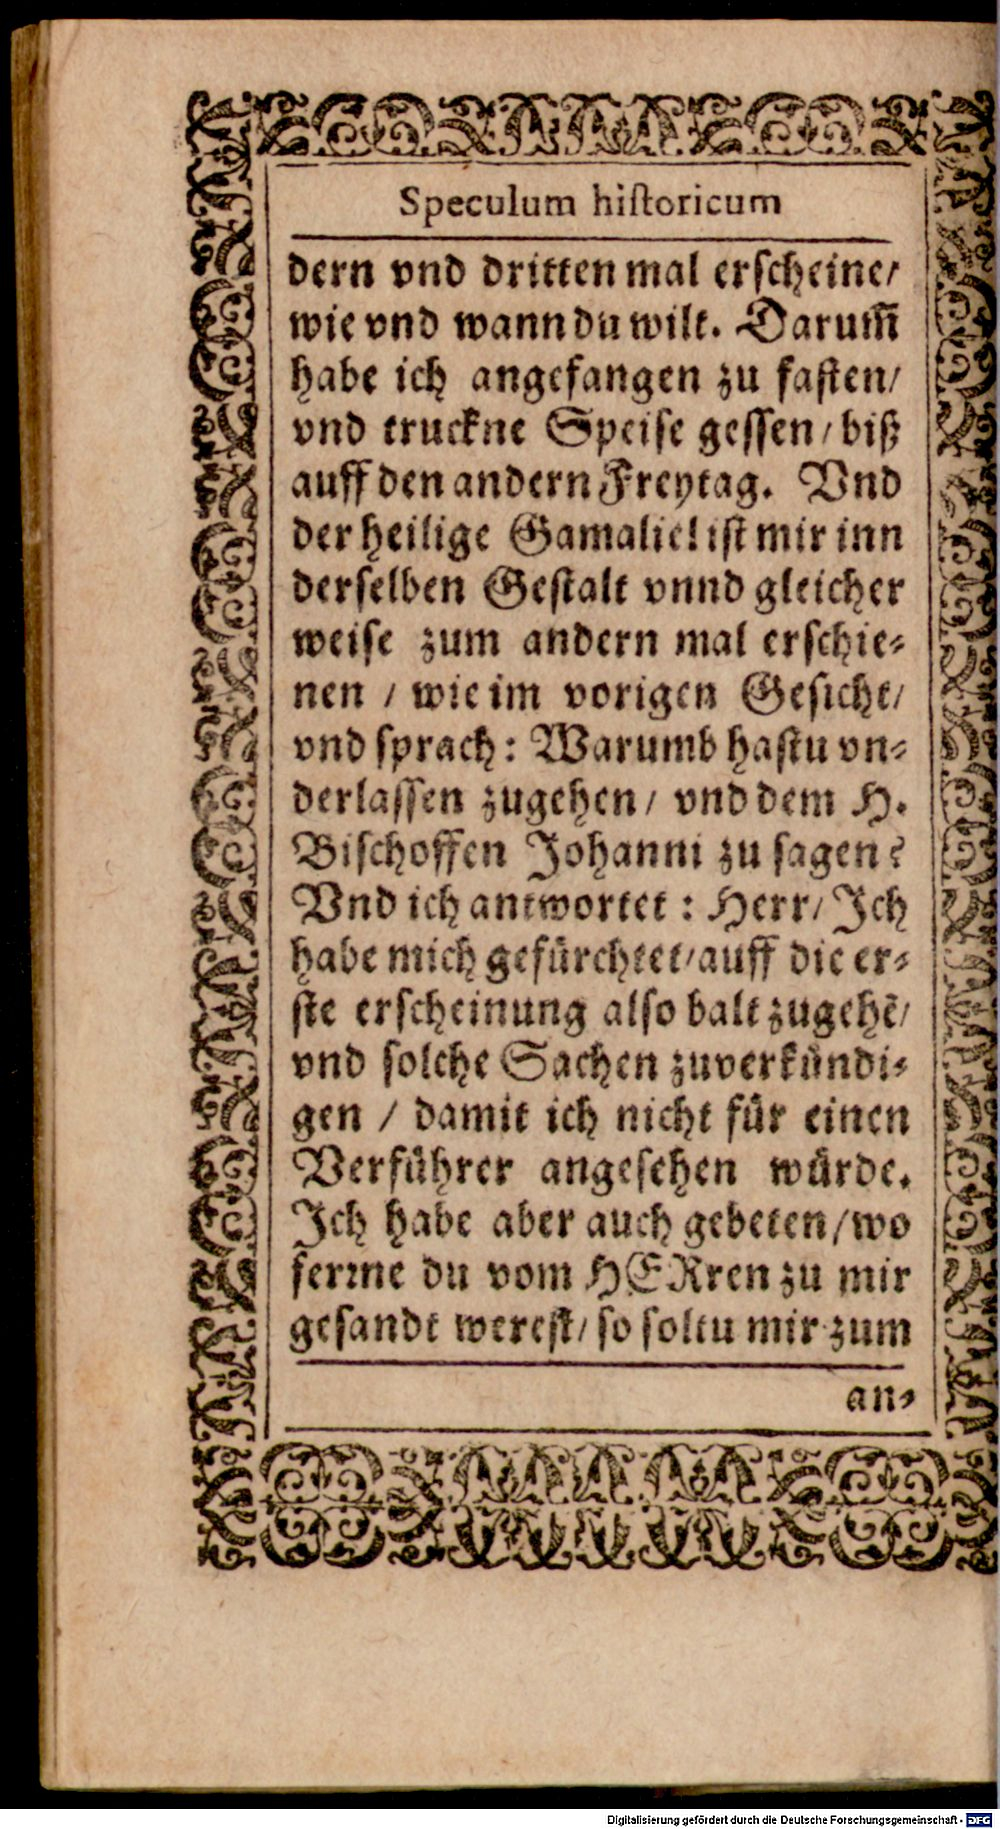 Speculum hiſtoricum
dern vnd dritten mal erſcheine/
wie vnd wann du wilt. Darum̄
habe ich angefangen zu faſten/
vnd truckne Speiſe geſſen/ biß
auff den andern Freytag. Vnd
der heilige Gamaliel iſt mir inn
derſelben Geſtalt vnnd gleicher
weiſe zum andern mal erſchie⸗
nen / wie im vorigen Geſicht/
vnd ſprach: Warumb haſtu vn⸗
derlaſſen zugehen/ vnd dem H.
Biſchoffen Johanni zu ſagen?
Vnd ich antwortet: Herr/ Ich
habe mich gefürchtet/ auff die er⸗
ſte erſcheinung alſo balt zugehē/
vnd ſolche Sachen zuverkündi⸗
gen / damit ich nicht für einen
Verführer angeſehen würde.
Ich habe aber auch gebeten/ wo
ferꝛne du vom HERren zu mir
geſandt wereſt/ ſo ſoltu mir zum
an⸗
Digitalisierung gefördert durch die Deutsche Forschungsgemeinschaft - DFG